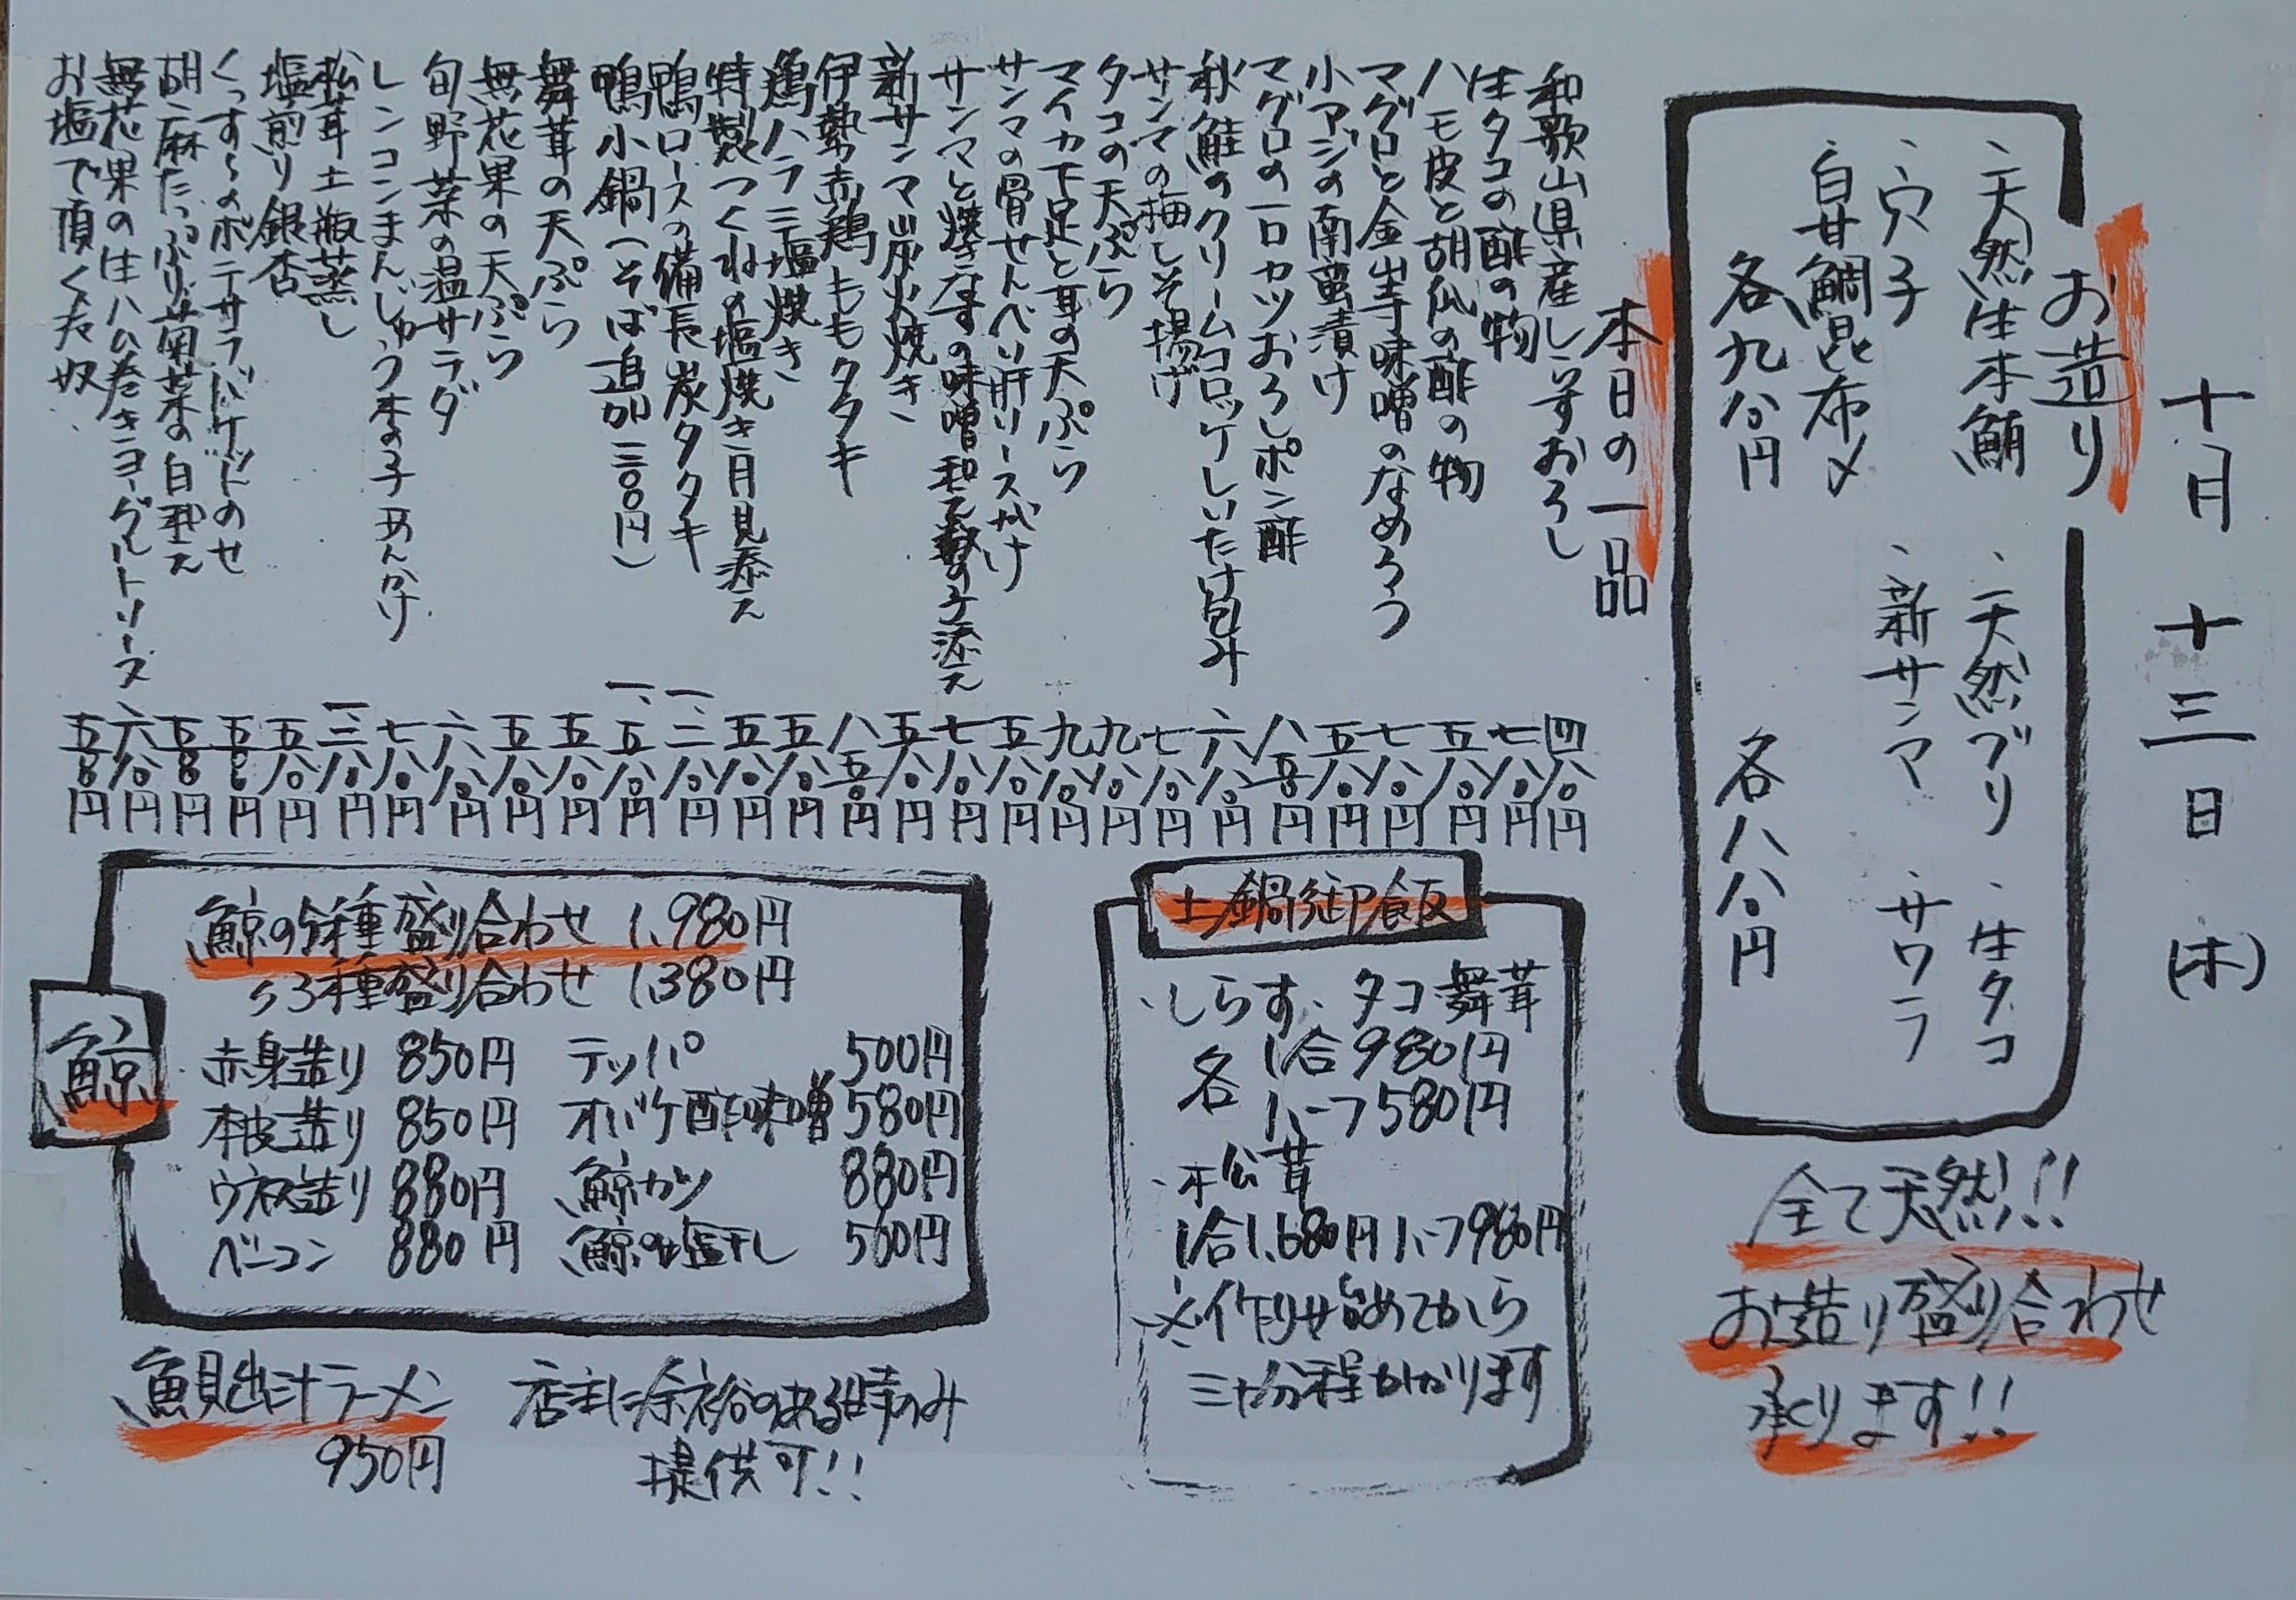 十月十三日(木)
お造り
、天然生本鮪 、天然ブリ 、生タコ
、穴子 、新サンマ 、サワラ
、白甘鯛昆布〆
各九八〇円 各八八〇円
全て天然!!
お造り盛り合わせ
承ります!!
本日の一品
和歌山県産しらすおろし 四八〇円
生タコの酢の物 七八〇円
ハモ皮と胡瓜の酢の物 五八〇円
マグロと金山寺味噌のなめろう 七八〇円
小アジの南蛮漬け 五八〇円
マグロの一口カツおろしポン酢 八五〇円
秋鮭のクリームコロッケしいたけ包み 六八〇円
サンマの梅しそ揚げ 七八〇円
タコの天ぷら 九八〇円
マイカ下足と耳の天ぷら 九八〇円
サンマの骨せんべい肝ソースがけ 五八〇円
サンマと焼きなすの味噌和え数の子添え 七八〇円
新サンマ炭火焼き 五八〇円
伊勢赤鶏ももタタキ 八五〇円
鶏ハラミ塩焼き 五八〇円
特製つくねの塩焼き月見添え 五八〇円
鴨ロースの備長炭タタキ 一、三八〇円
鴨小鍋(そば追加三〇〇円) 一、五八〇円
舞茸の天ぷら 五八〇円
無花果の天ぷら 五八〇円
旬野菜の温サラダ 六八〇円
レンコンまんじゅう木の子あんかけ 七八〇円
松茸土瓶蒸し 一三八〇円
塩煎り銀杏 五八〇円
くっすーのポテサラバケットのせ 五五〇円
胡麻たっぷり菊菜の白和え 五五〇円
無花果の生ハム巻きヨーグルトソース 六八〇円
お塩で頂く冷奴 五五〇円
土鍋御飯
、しらす、タコ、舞茸
各 1合980円
ハーフ580円
、松茸
1合1,680円ハーフ980円
※作り始めてから
三十分程かかります
鯨
鯨の5種盛り合わせ 1,980円
〃3種盛り合わせ 1,380円
赤身造り 850円 テッパ 500円
本皮造り 850円 オバケ酢味噌 580円
ウネス造り 880円 鯨カツ 880円
ベーコン 880円 鯨の塩干し 560円
魚貝出汁ラーメン
950円
店主に余裕のある時のみ
提供可!!